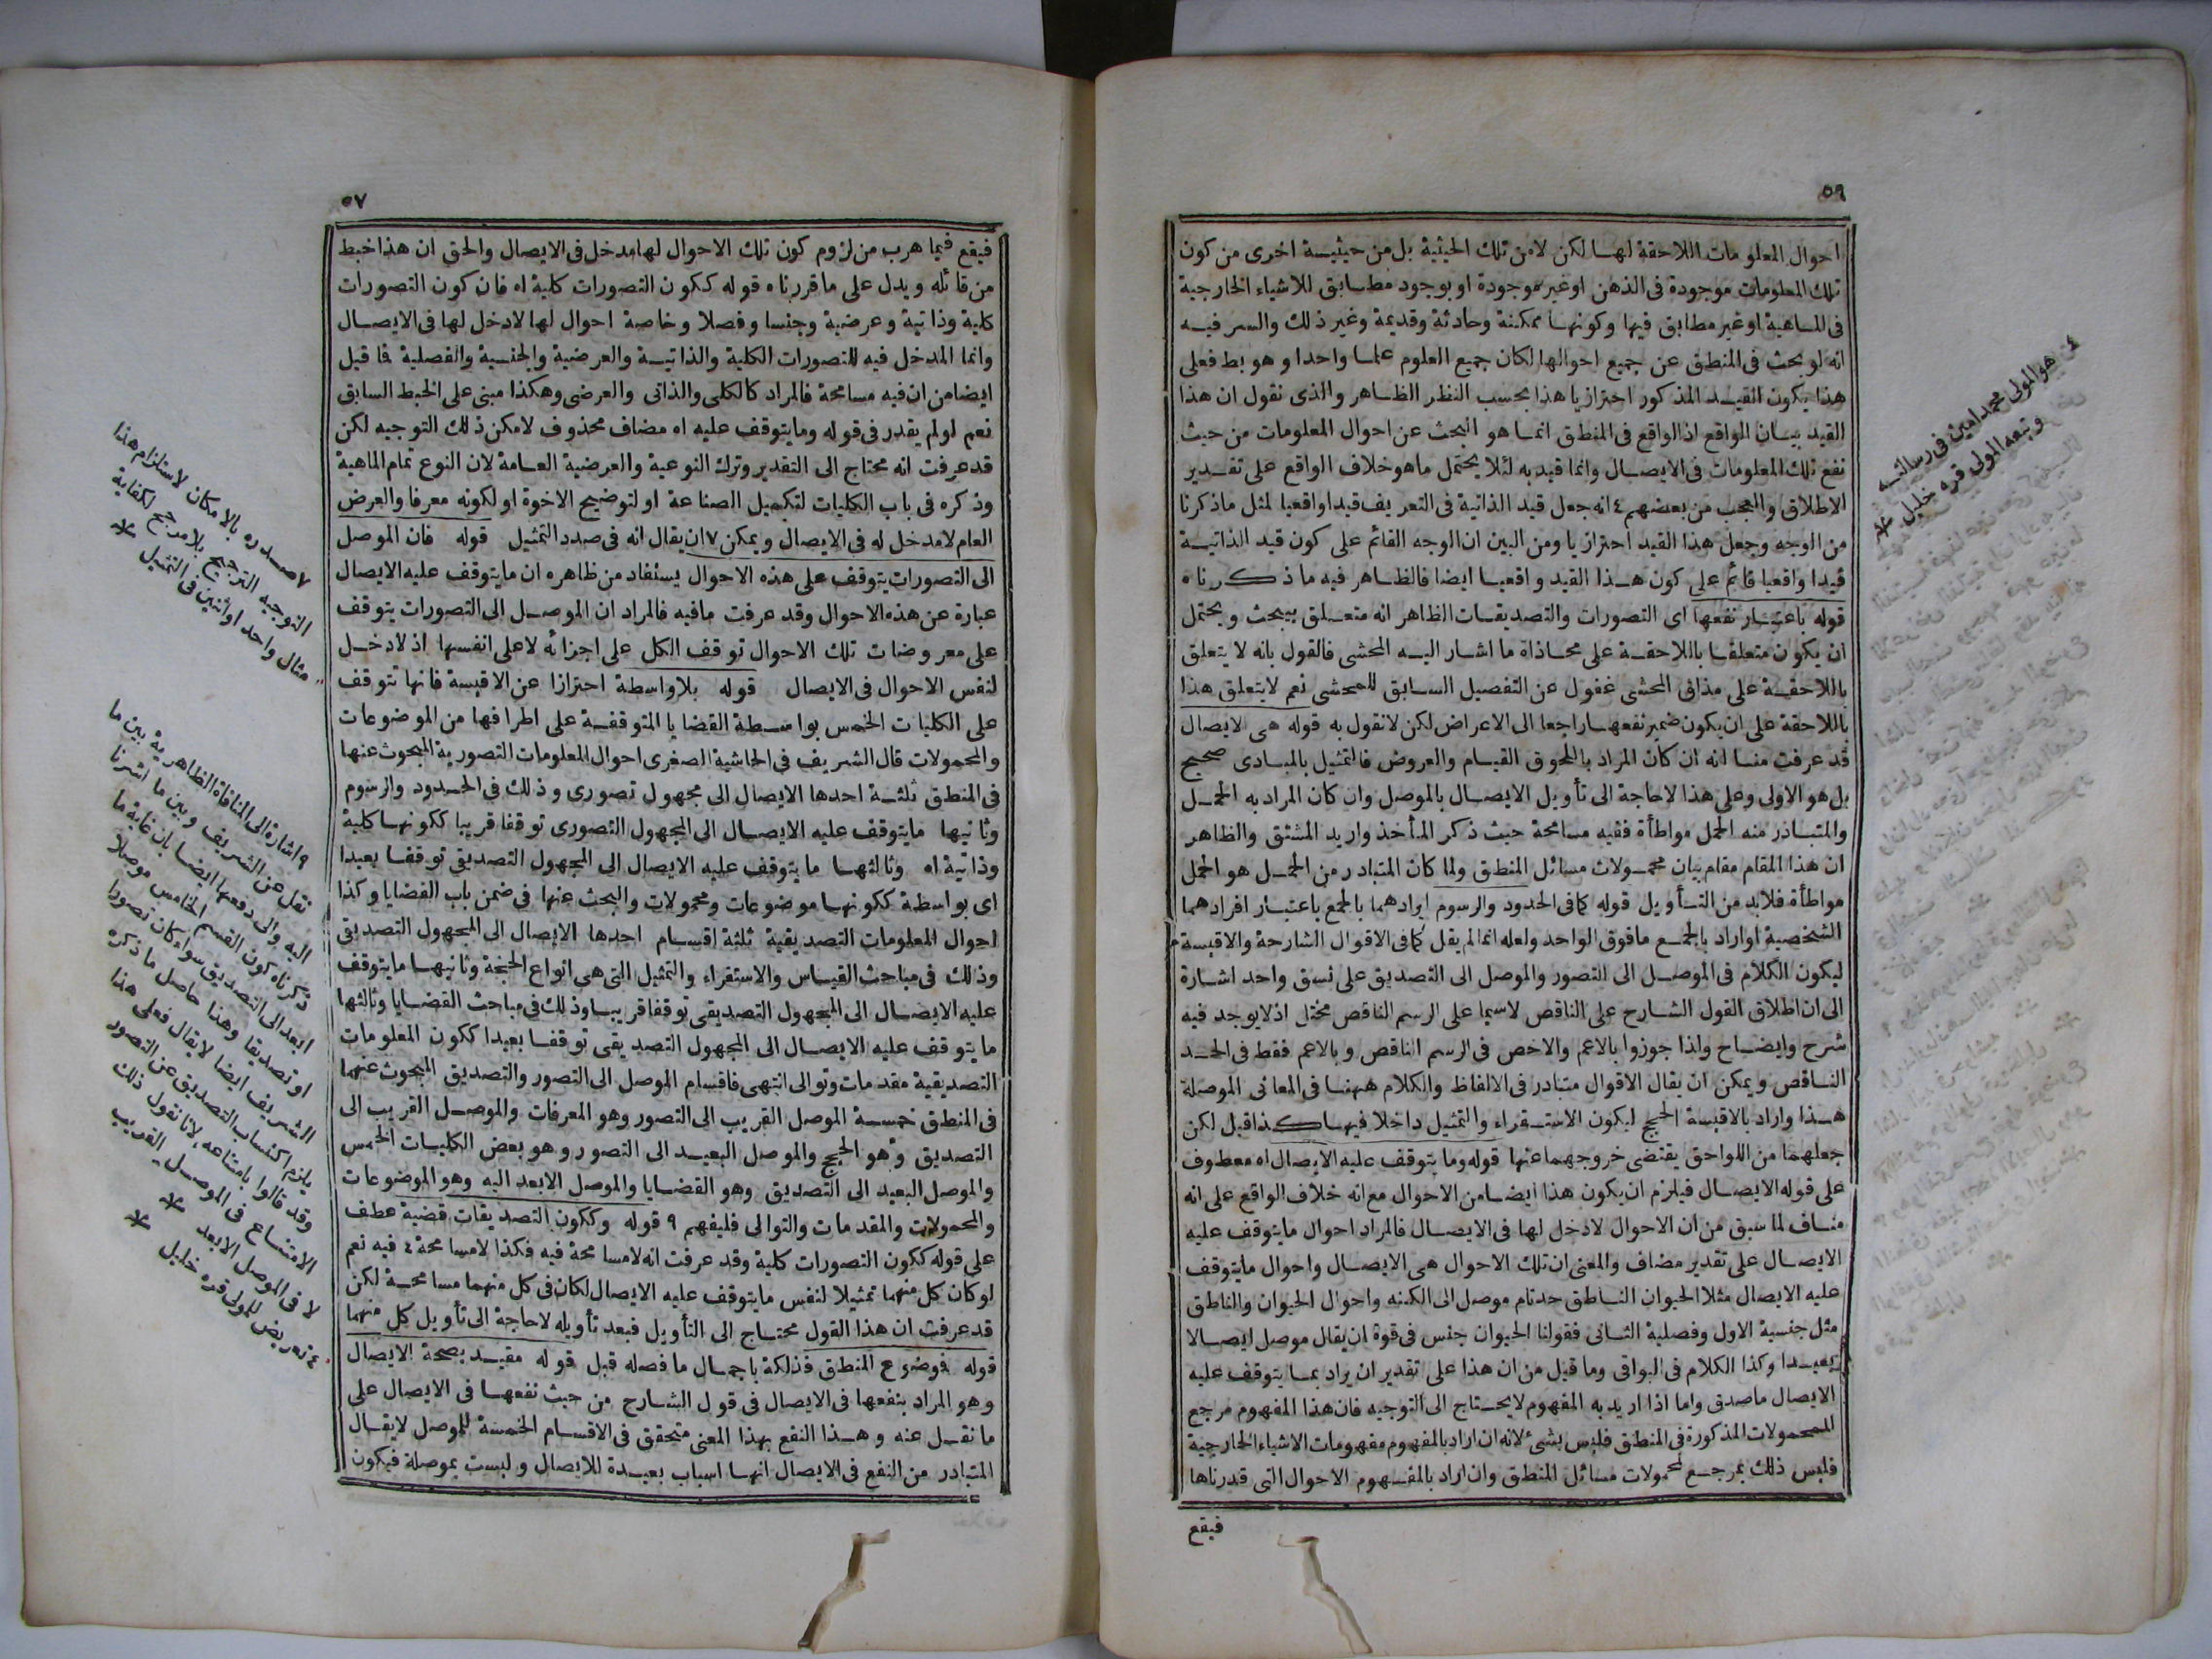 ٥٦
احوال المعلومات اللاحقة لها لكن لامن تلك الحيثية بل من حيثية اخرى من كون
تلك المعلومات موجودة فى الذهن اوغير موجودة او بوجود مطابق للاشياء الخارجية
فى الماهية اوغير مطابق فيها وكونها ممكنة وحادثة وقديمة وغير ذلك والسر فيه
انه لو بحث فى المنطق عن جميع احوالها لكان جميع العلوم علما واحدا وهو بط فعلى
هذا يكون القيد المذكور احترازيا هذا بحسب النظر الظاهر والذى نقول ان هذا
القيد بيان الواقع اذ الواقع فى المنطق انما هو البحث عن احوال المعلومات من حيث
نفع تلك المعلومات فى الايصال وانما قيد به لئلا يحتمل ماهو خلاف الواقع على تقدير
الاطلاق والعجب من بعضهم ٤ انه جعل قيد الذاتية فى التعريف قيدا واقعيا لمثل ماذكرنا
من الوجه وجعل هذا القيد احترازيا ومن البين ان الوجه القائم على كون قيد الذاتية
قيدا واقعيا قائم على كون هذا القيد واقعيا ايضا فالظاهر فيه ماذكرناه
قوله باعتبار نفعها اى التصورات والتصديقات الظاهر انه متعلق بيبحث ويحتمل
ان يكون متعلقا باللاحقة على محاذاة ما اشار اليه المحشى فالقول بانه لا يتعلق
باللاحقة على مذاق المحشى غفول عن التفصيل السابق للمحشى نعم لايتعلق هذا
باللاحقة على ان يكون ضمير نفعها راجعا الى الاعراض لكن لانقول به قوله هى الايصال
قد عرفت منا انه ان كان المراد باللحوق القيام والعروض فالتمثيل بالمبادى صحيح
بل هو الاولى وعلى هذا لاحاجة الى تأويل الايصال بالموصل وان كان المراد به الحمل
والمتبادر منه الحمل مواطأة ففيه مسامحة حيث ذكر المأخذ واريد المشتق والظاهر
ان هذا المقام مقام بيان محمولات مسائل المنطق ولما كان المتبادر من الحمل هو الحمل
مواطأة فلابد من التأويل قوله كمافى الحدود والرسوم ايرادهما بالجمع باعتبار افرادهما
الشخصية اواراد بالجمع مافوق الواحد ولعله انما لم يقل كمافى الاقوال الشارحة والاقيسة
ليكون الكلام فى الموصل الى التصور والموصل الى التصديق على نسق واحد اشارة
الى ان اطلاق القول الشارح على الناقص لاسيما على الرسم الناقص مختل اذ لايوجد فيه
شرح وايضاح ولذا جوزوا بالاعم والاخص فى الرسم الناقص وبالاعم فقط فى الحد
الناقص ويمكن ان يقال الاقوال متبادر فى الالفاظ والكلام ههنا فى المعانى الموصلة
هذا واراد بالاقيسة الحجج ليكون الاستقراء والتمثيل داخلا فيها كذا قيل لكن
جعلهما من اللواحق يقتضى خروجهما عنها قوله وما يتوقف عليه الايصال اه معطوف
على قوله الايصال فيلزم ان يكون هذا ايضا من الاحوال مع انه خلاف الواقع على انه
مناف لما سبق من ان الاحوال لادخل لها فى الايصال فالمراد احوال مايتوقف عليه
الايصال على تقدير مضاف والمعنى ان تلك الاحوال هى الايصال واحوال مايتوقف
عليه الايصال مثلا الحيوان الناطق حد تام موصل الى الكنه واحوال الحيوان والناطق
مثل جنسية الاول وفصلية الثانى فقولنا الحيوان جنس فى قوة ان يقال موصل ايصالا
بعيدا وكذا الكلام فى البواقى وما قيل من ان هذا على تقدير ان يراد بما يتوقف عليه
الايصال ماصدق واما اذا اريد به المفهوم لايحتاج الى التوجيه فان هذا المفهوم مرجع
المحمولات المذكورة فى المنطق فليس بشئ لانه ان اراد بالمفهوم مفهومات الاشياء الخارجية
فليس ذلك بمرجع لمحمولات مسائل المنطق وان اراد بالمفهوم الاحوال التى قدرناها
فيقع
٤ هو المولى محمد امين فى رسالته
وتبعه المولى قره خليل *
٥٧
فيقع فيما هرب من لزوم كون تلك الاحوال لها مدخل فى الايصال والحق ان هذا خبط
من قائله ويدل على ماقررناه قوله ككون التصورات كلية اه فان كون التصورات
كلية وذاتية وعرضية وجنسا وفصلا وخاصة احوال لها لادخل لها فى الايصال
وانما المدخل فيه للتصورات الكلية والذاتية والعرضية والجنسية والفصلية فما قيل
ايضا من ان فيه مسامحة فالمراد كالكلى والذاتى والعرضى وهكذا مبنى على الخبط السابق
نعم لولم يقدر فى قوله ومايتوقف عليه اه مضاف محذوف لامكن ذلك التوجيه لكن
قد عرفت انه محتاج الى التقدير وترك النوعية والعرضية العامة لان النوع تمام الماهية
وذكره فى باب الكليات لتكميل الصناعة او لتوضيح الاخوة او لكونه معرفا والعرض
العام لامدخل له فى الايصال ويمكن ٧ ان يقال انه فى صدد التمثيل قوله فان الموصل
الى التصورات يتوقف على هذه الاحوال يستفاد من ظاهره ان مايتوقف عليه الايصال
عبارة عن هذه الاحوال وقد عرفت مافيه فالمراد ان الموصل الى التصورات يتوقف
على معروضات تلك الاحوال توقف الكل على اجزائه لا على انفسها اذ لادخل
لنفس الاحوال فى الايصال قوله بلاواسطة احترازا عن الاقيسة فانها تتوقف
على الكليات الخمس بواسطة القضايا المتوقفة على اطرافها من الموضوعات
والمحمولات قال الشريف فى الحاشية الصغرى احوال المعلومات التصورية المبحوث عنها
فى المنطق ثلثة احدها الايصال الى مجهول تصورى وذلك فى الحدود والرسوم
وثانيها مايتوقف عليه الايصال الى المجهول التصورى توقفا قريبا ككونها كلية
وذاتية اه وثالثها ما يتوقف عليه الايصال الى المجهول التصديقى توقفا بعيدا
اى بواسطة ككونها موضوعات ومحمولات والبحث عنها فى ضمن باب القضايا وكذا
احوال المعلومات التصديقية ثلثة اقسام احدها الايصال الى المجهول التصديقى
وذلك فى مباحث القياس والاستقراء والتمثيل التى هى انواع الحجة وثانيها مايتوقف
عليه الايصال الى المجهول التصديقى توقفا قريبا وذلك فى مباحث القضايا وثالثها
ما يتوقف عليه الايصال الى المجهول التصديقى توقفا بعيدا ككون المعلومات
التصديقية مقدمات وتوالى انتهى فاقسام الموصل الى التصور والتصديق المبحوث عنهما
فى المنطق خمسة الموصل القريب الى التصور وهو المعرفات والموصل القريب الى
التصديق وهو الحجج والموصل البعيد الى التصور وهو بعض الكليات الخمس
والموصل البعيد الى التصديق وهو القضايا والموصل الابعد اليه وهو الموضوعات
والمحمولات والمقدمات والتوالى فليفهم ٩ قوله وككون التصديقات قضية عطف
على قوله ككون التصورات كلية وقد عرفت انه لامسامحة فيه فكذا لامسامحة ٤ فيه نعم
لوكان كل منهما تمثيلا لنفس مايتوقف عليه الايصال لكان فى كل منهما مسامحة لكن
قد عرفت ان هذا القول محتاج الى التأويل فبعد تأويله لاحاجة الى تأويل كل منهما
قوله فوضوع المنطق فذلكة باجمال ما فصله قبل قوله مقيد بصحة الايصال
وهو المراد بنفعها فى الايصال فى قول الشارح من حيث نفعها فى الايصال على
ما نقل عنه وهذا النفع بهذا المعنى متحقق فى الاقسام الخمسة للموصل لايقال
المتبادر من النفع فى الايصال انها اسباب بعيدة للايصال وليست بموصلة فيكون
٧ صدره بالامكان لاستلزام هذا
التوجيه الترجيح بلامرجح لكفاية
مثال واحد اواثنين فى التمثيل *
٩ اشارة الى المنافاة الظاهرية بين ما
نقل عن الشريف وبين ما اشرنا
اليه والى دفعها ايضا بان غاية ما
ذكرناه كون القسم الخامس موصلا
ابعد الى التصديق سواء كان تصورا
او تصديقا وهذا حاصل ما ذكره
الشريف ايضا لايقال فعلى هذا
يلزم اكتساب التصديق عن التصور
وقد قالوا بامتناعه لانا نقول ذلك
الامتناع فى الموصل القريب
لا فى الموصل الابعد *
٤ تعريض للمولى قره خليل *